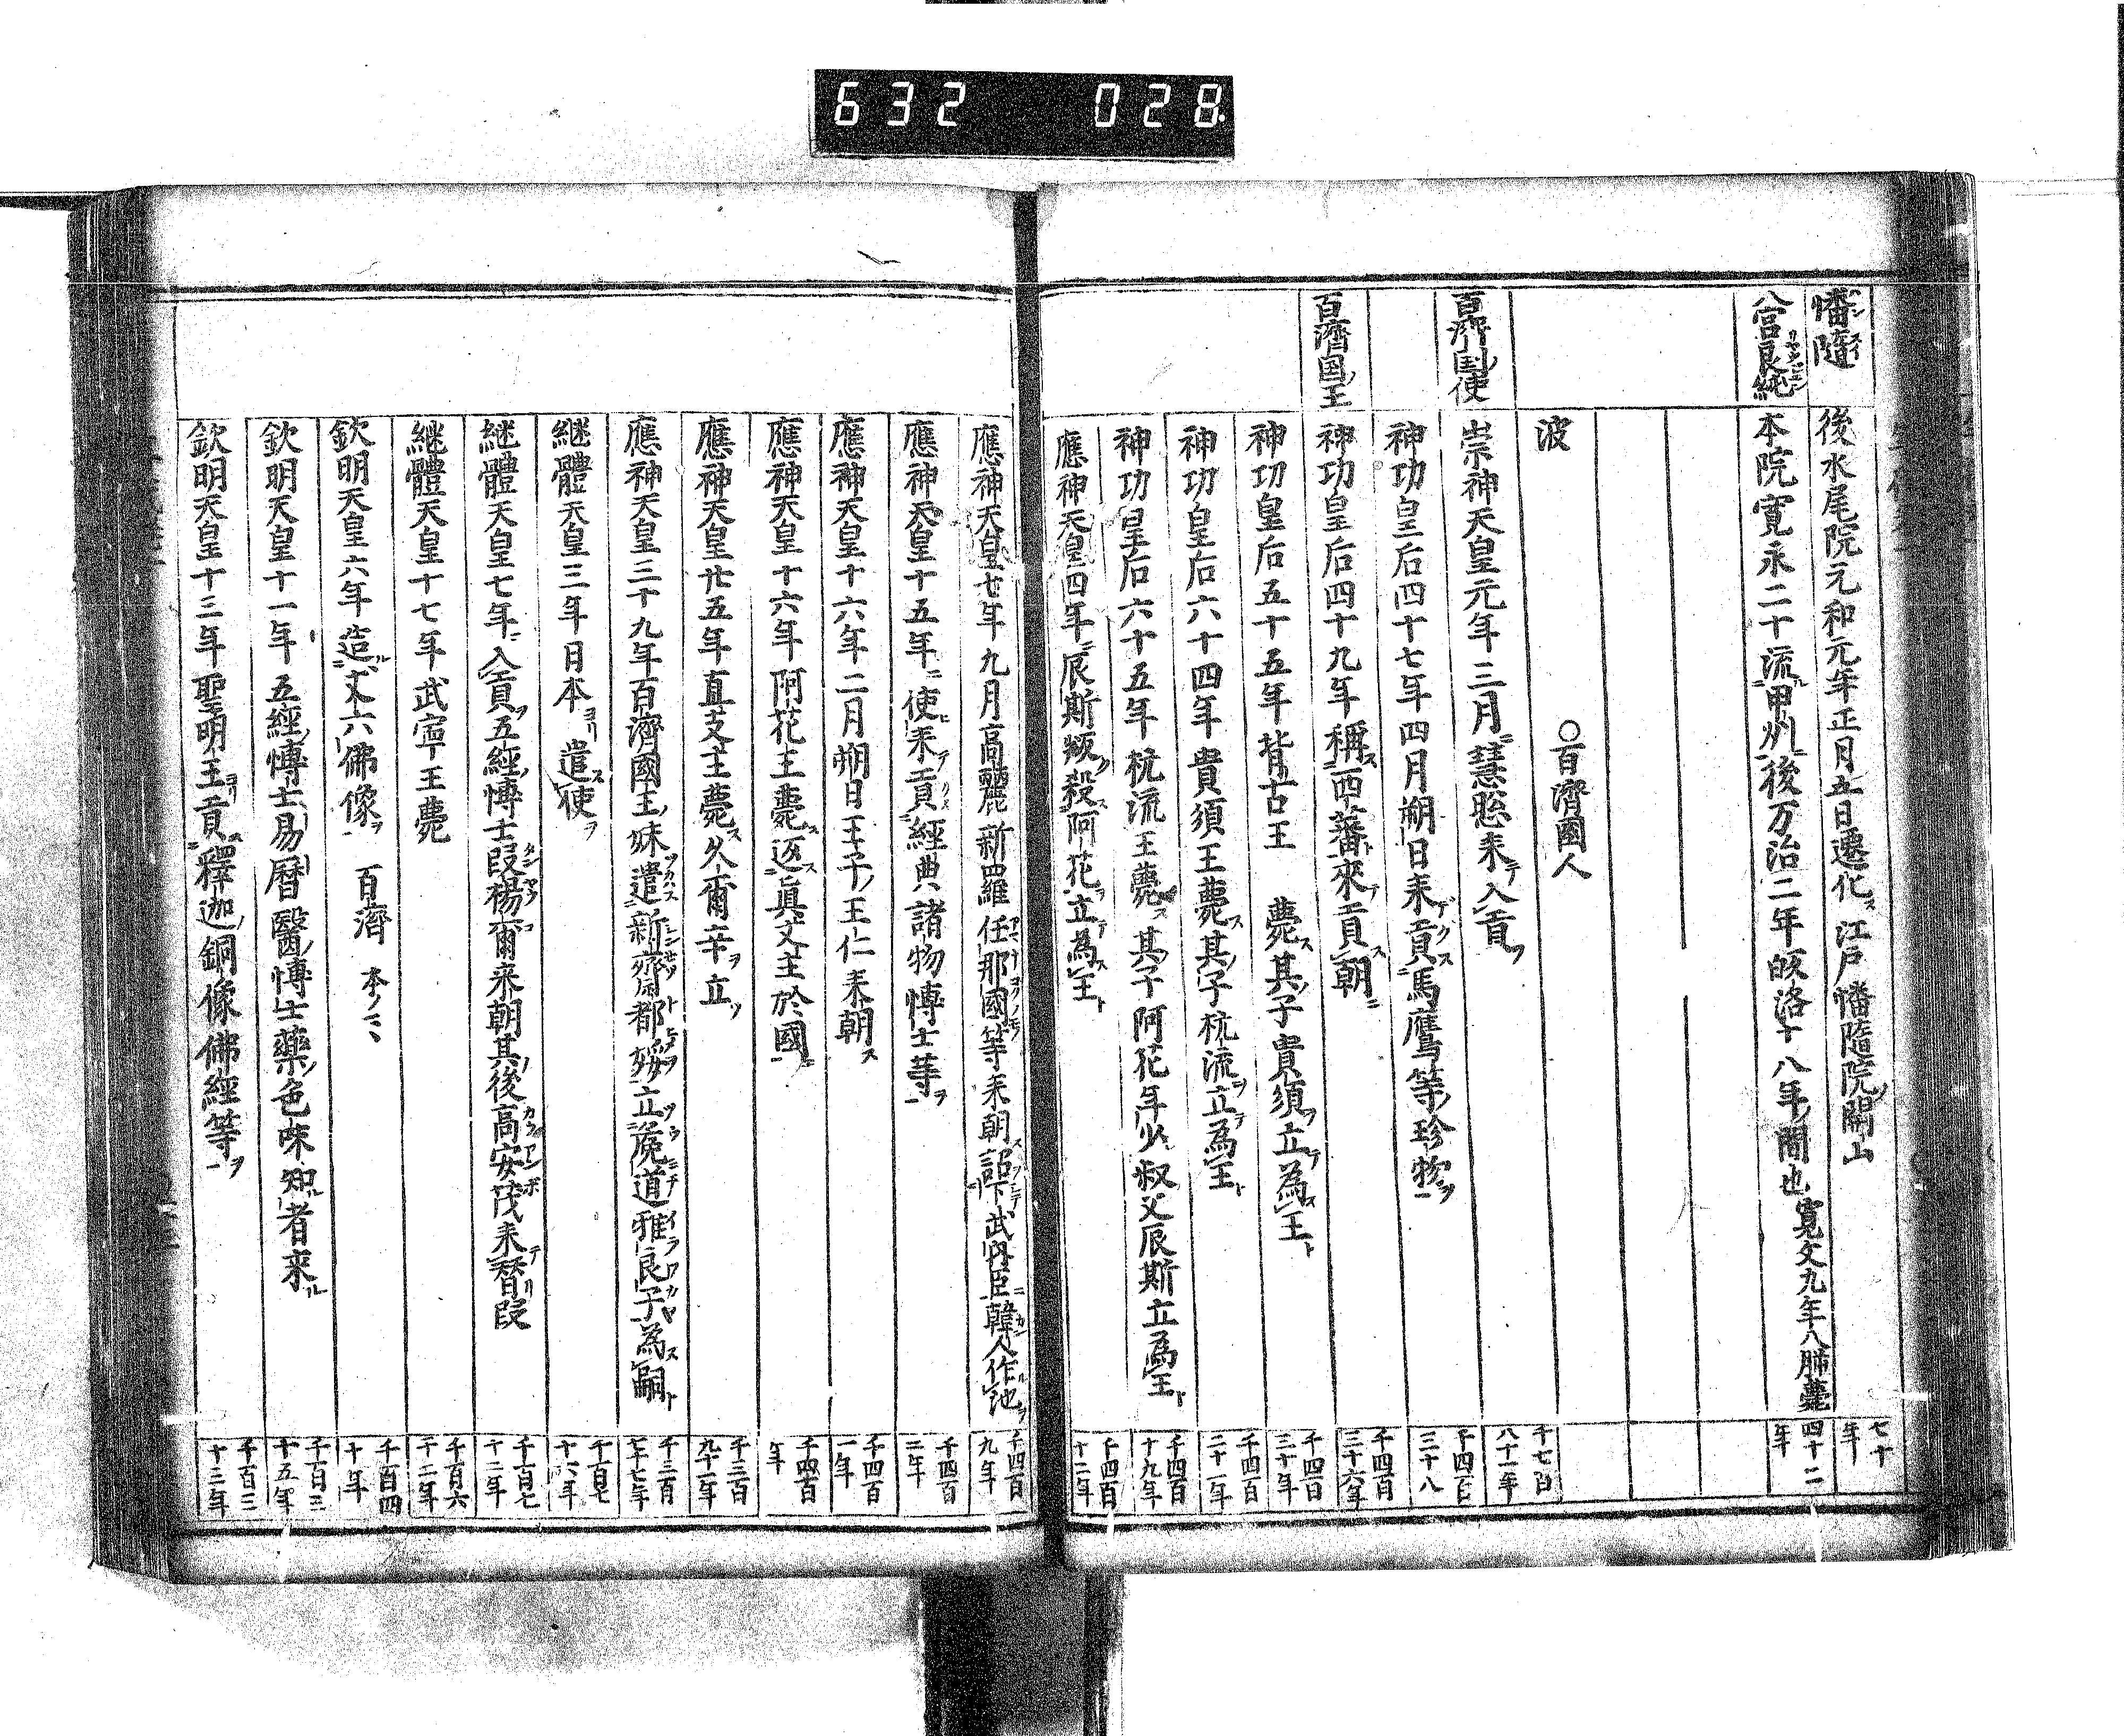 632 028
幡隨
後水尾院元和元年正月五日遷化ス江戸幡隨院ノ開山
七十年
八宮良純
本院寛永二十流甲州後万治二年皈洛十八年ノ間也寛文九年八朔薨
四十二年
波
○百濟國人
百濟国ノ使
崇神天皇元年三月慧𢚩来テ入貢ヲ
千七百八十一年
神功皇后四十七年四月朔日来デ貢クス馬鷹等ノ珍物ヲ
千四百三十八
百濟国ノ王
神功皇后四十九年稱ス西蕃ト來テ貢ス朝ニ
千四百三十六年
神功皇后五十五年背古王薨ス其ノ子貴須ヲ立テ為ス王ト
千四百三十年
神功皇后六十四年貴須王薨ス其ノ子杭流ヲ立テ為王ト
千四百二十一年
神功皇后六十五年杭流王薨ス其ノ子阿花年少叔父辰斯立為王ト
千四百十九年
應神天皇四年辰斯叛ク殺ス阿花ヲ立テ為ス王ト
千四百十二年
應神天皇七年九月高麗新羅任那國等来朝ス詔下武内臣ニ韓人作ル池ヲ
千四百九年
應神天皇十五年ニ使ヒ来テ貢クス經典諸物博士等ヲ
千四百二年
應神天皇十六年二月朔日王子ノ王仁来朝ス
千四百一年
應神天皇十六年阿花王薨ス返ス眞支主於國ニ
千四百年
應神天皇廿五年直支主薨ス久爾辛ヲ立ツ
千三百九十一年
應神天皇三十九年百濟國王ノ妹遣ツカハス新齋都媛ヲ立菟道雅良子為ス嗣ト
千三百七十七年
継體天皇三年日本ヨリ遣ス使ヲ
千百七十六年
継體天皇七年ニ入貢ヲ五經ノ博士段楊爾来朝其ノ後高安茂来テ替リ段
千百七十二年
継體天皇十七年武寧王薨
千百六十二年
欽明天皇六年造ル丈六ノ佛像ヲ百濟本ノミヽ
千百四十年
欽明天皇十一年五經ノ博士易曆醫ノ博士藥ノ色味知ル者来ル
千百三十五年
欽明天皇十三年聖明王ヨリ貢ス釋迦ノ銅像佛經等ヲ
千百三十三年